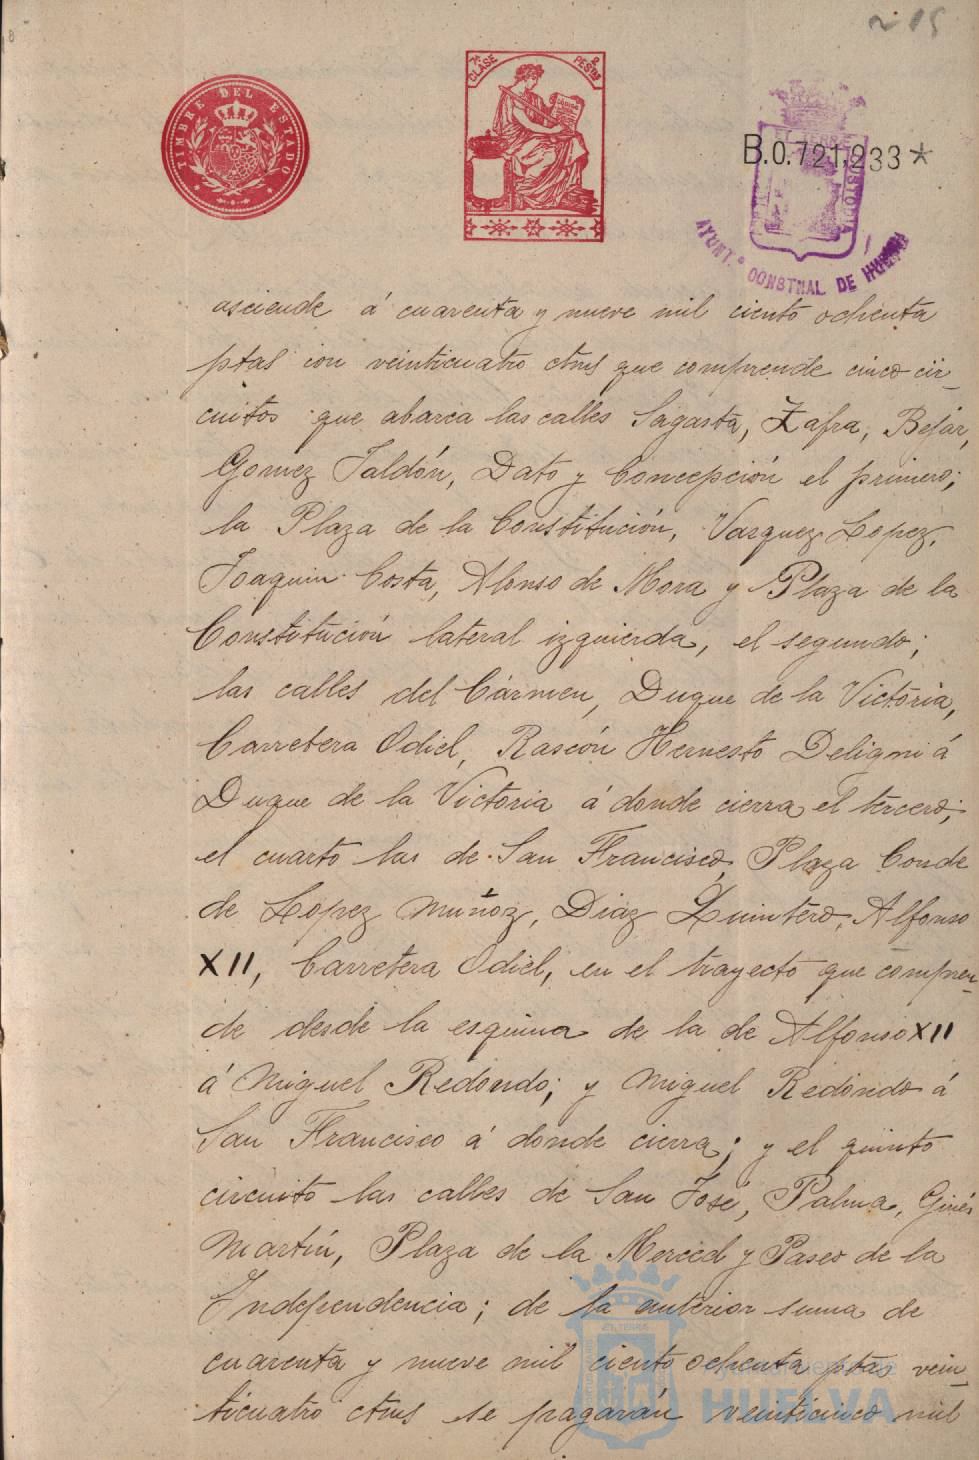 215
TIMBRE DEL ESTADO
7ª CLASE 2 PESTAS
B.0.721,233*
AYUNT.º CONSTNAL DE HUELVA
asciende á cuarenta y nueve mil ciento ochenta
ptas con veinticuatro ctms que comprende cinco cir-
cuitos que abarca las calles Sagasta, Zafra, Bejar,
Gomez Jaldón, Dato y Concepción el primero;
la Plaza de la Constitución, Vazquez Lopez,
Joaquin Costa, Alonso de Mora y Plaza de la
Constitución lateral izquierda, el segundo;
las calles del Cármen, Duque de la Victoria,
Carretera Odiel, Rascón Hernesto Deligni á
Duque de la Victoria á donde cierra el tercero;
el cuarto las de San Francisco, Plaza Conde
de Lopez Muñoz, Diaz Quintero, Alfonso
XII, Carretera Odiel, en el trayecto que compren-
de desde la esquina de la de Alfonso XII
á Miguel Redondo; y Miguel Redondo á
San Francisco á donde cierra; y el quinto
circuito las calles de San José, Palma, Ginés
Martín, Plaza de la Merced y Paseo de la
Independencia; de la anterior suma de
cuarenta y nueve mil ciento ochenta ptas vein-
ticuatro ctms se pagarán veinticinco mil
Ayuntamiento de
HUELVA